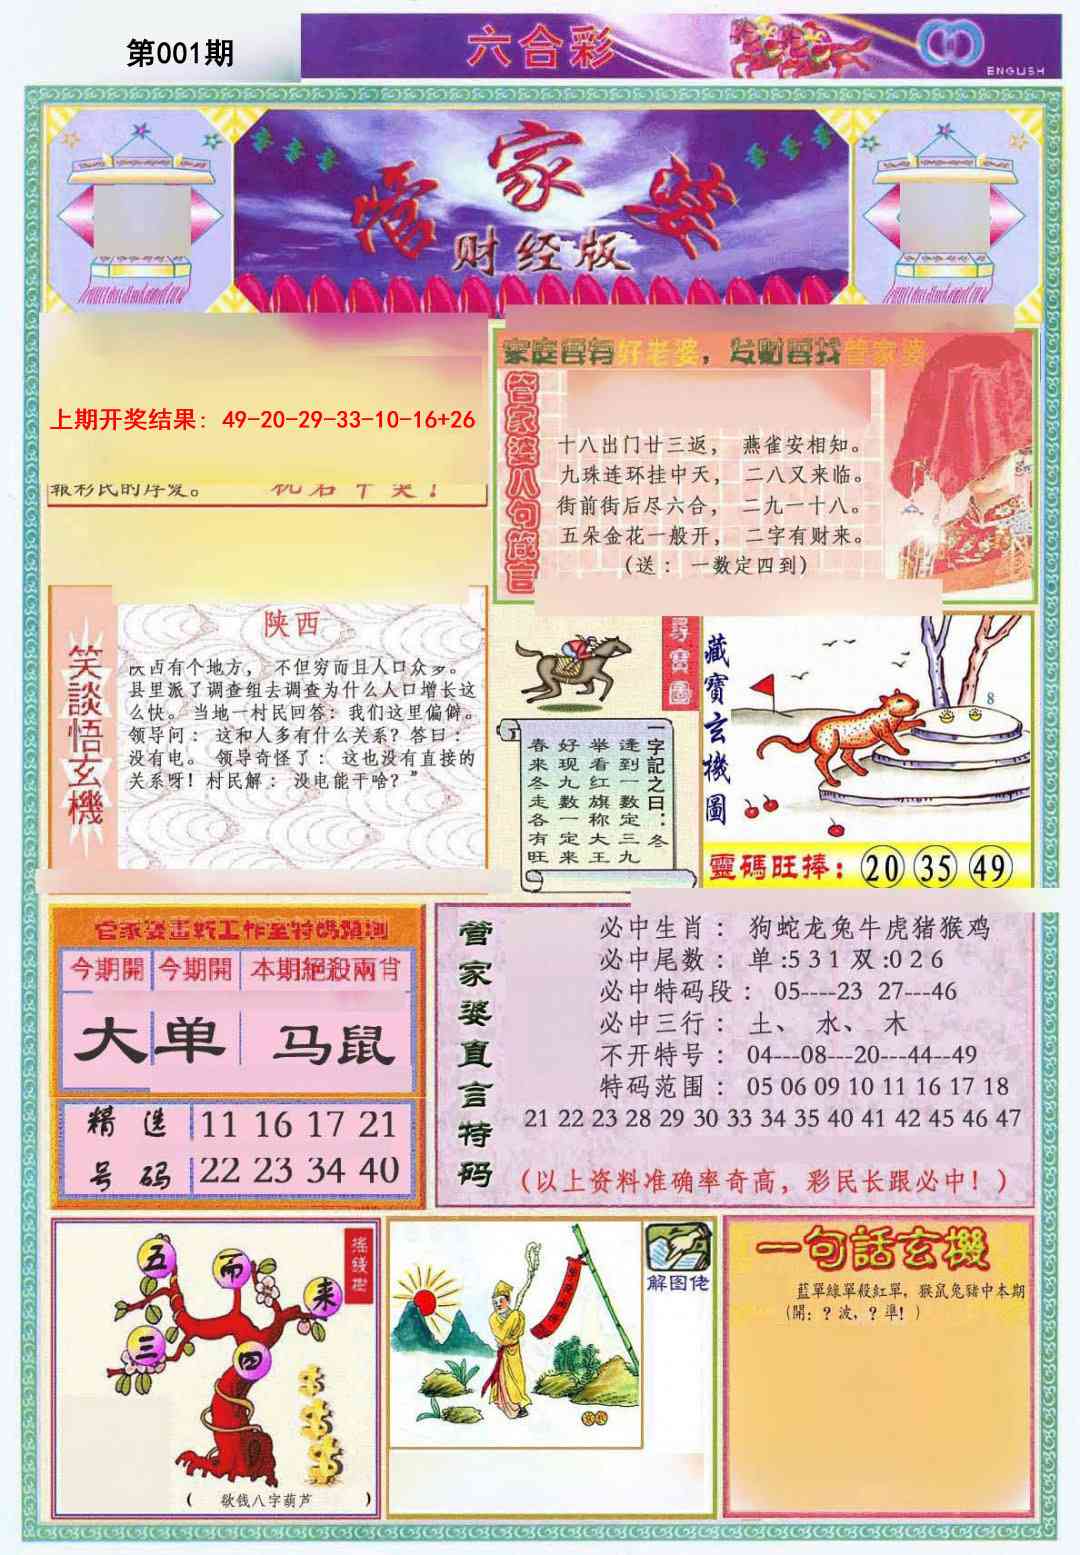 第001期
六合彩
ENGLISH
管家婆
财经版
上期开奖结果: 49-20-29-33-10-16+26
報彩民的厚爱。 祝君中奖！
家庭要有好老婆，发财要找管家婆
管家婆八句箴言
十八出门廿三返， 燕雀安相知。
九珠连环挂中天， 二八又来临。
街前街后尽六合， 二九一十八。
五朵金花一般开， 二字有财来。
(送： 一数定四到)
笑談悟玄機
陕西
陕西有个地方， 不但穷而且人口众多。
县里派了调查组去调查为什么人口增长这
么快。当地一村民回答：我们这里偏僻。
领导问： 这和人多有什么关系？答曰：
没有电。 领导奇怪了： 这也没有直接的
关系呀！村民解： 没电能干啥？”
尋寶圖
一字記之曰：冬
逢到一数定三九
举看红旗称大王
好现九数一定来
春来冬走各有旺
藏寶玄機圖
8
靈碼旺捧：20 35 49
管家婆畫新工作室特碼預測
今期開 今期開 本期絕殺兩肖
大 单 马鼠
精选 11 16 17 21
号码 22 23 34 40
管家婆直言特码
必中生肖： 狗蛇龙兔牛虎猪猴鸡
必中尾数： 单:5 3 1 双:0 2 6
必中特码段： 05----23 27---46
必中三行： 土、 水、 木
不开特号： 04---08---20---44--49
特码范围： 05 06 09 10 11 16 17 18
21 22 23 28 29 30 33 34 35 40 41 42 45 46 47
(以上资料准确率奇高，彩民长跟必中！)
摇錢樹
五
而
来
三
四
( 欲钱八字葫芦 )
解图佬
一句話玄機
藍單綠單殺紅單，猴鼠兔豬中本期
(開：？波，？準！)